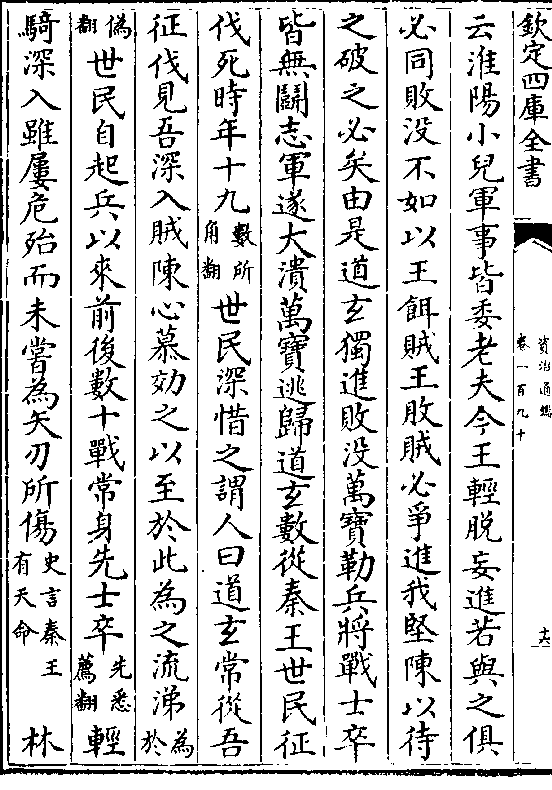 欽定四庫全書
資治通鑑
卷一百九十
云淮陽小兒軍事皆委老夫今王輕脱妄進若與之俱
必同敗没不如以王餌賊王敗賊必爭進我堅陳以待
之破之必矣由是道玄獨進敗没萬寶勒兵將戰士卒
皆無鬬志軍遂大潰萬寶逃歸道玄數從秦王世民征
伐死時年十九數所角翻世民深惜之謂人曰道玄常從吾
征伐見吾深入賊陳心慕効之以至於此為之流涕為於
偽翻世民自起兵以來前後數十戰常身先士卒先悉薦翻輕
騎深入雖屢危殆而未嘗為矢刃所傷史言秦王有天命林